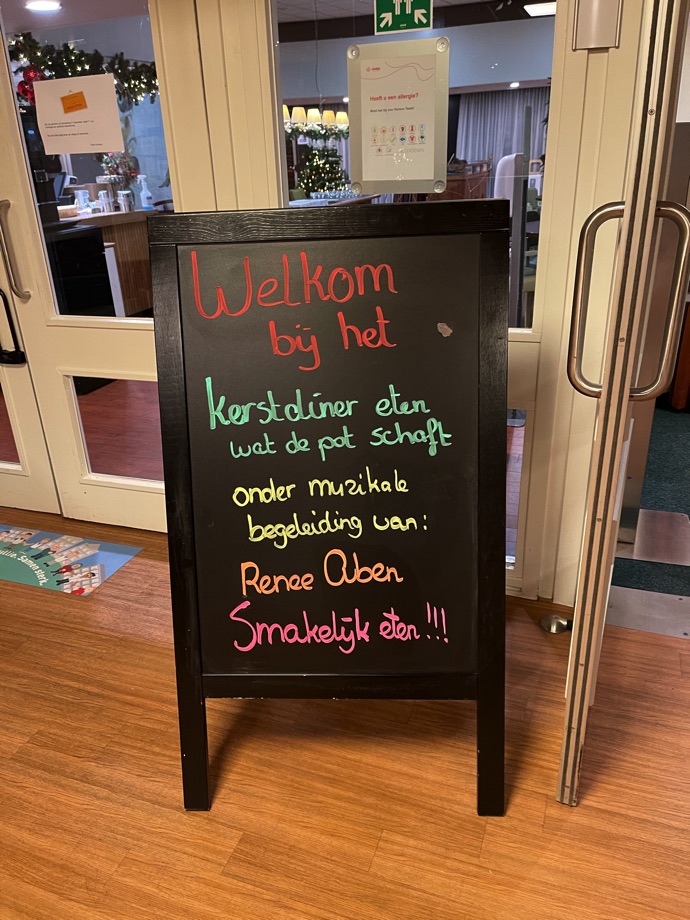 Heeft u een allergie?
Welkom
bij het
kerstdiner eten
wat de pot schaft
onder muzikale
begeleiding van:
Renee Aben
Smakelijk eten!!!
Samen sterk.